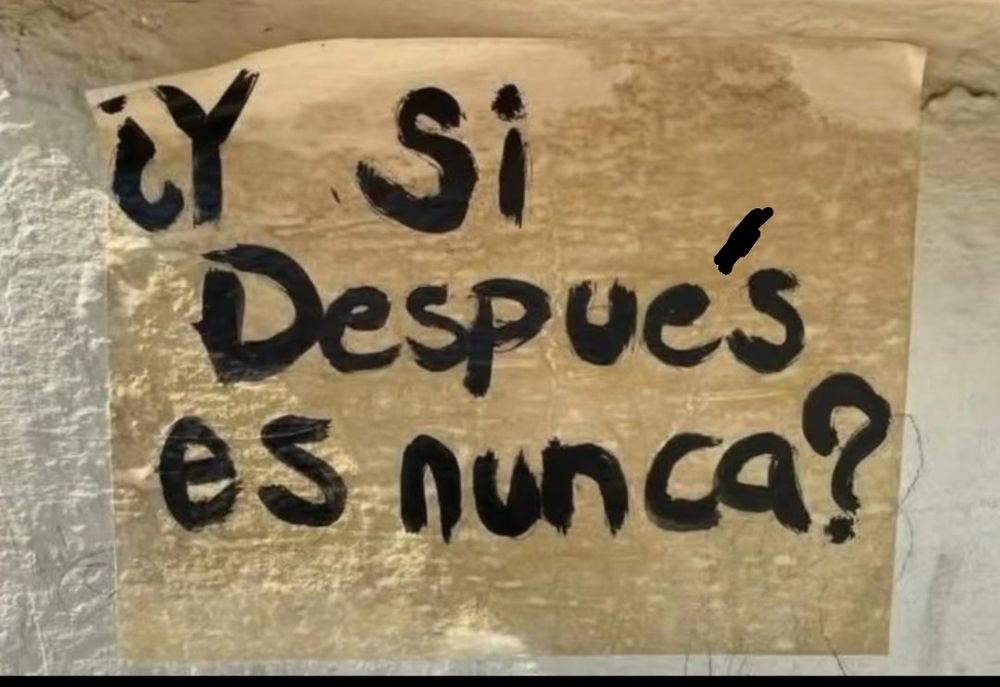 ¿Y Si
Después
es nunca?